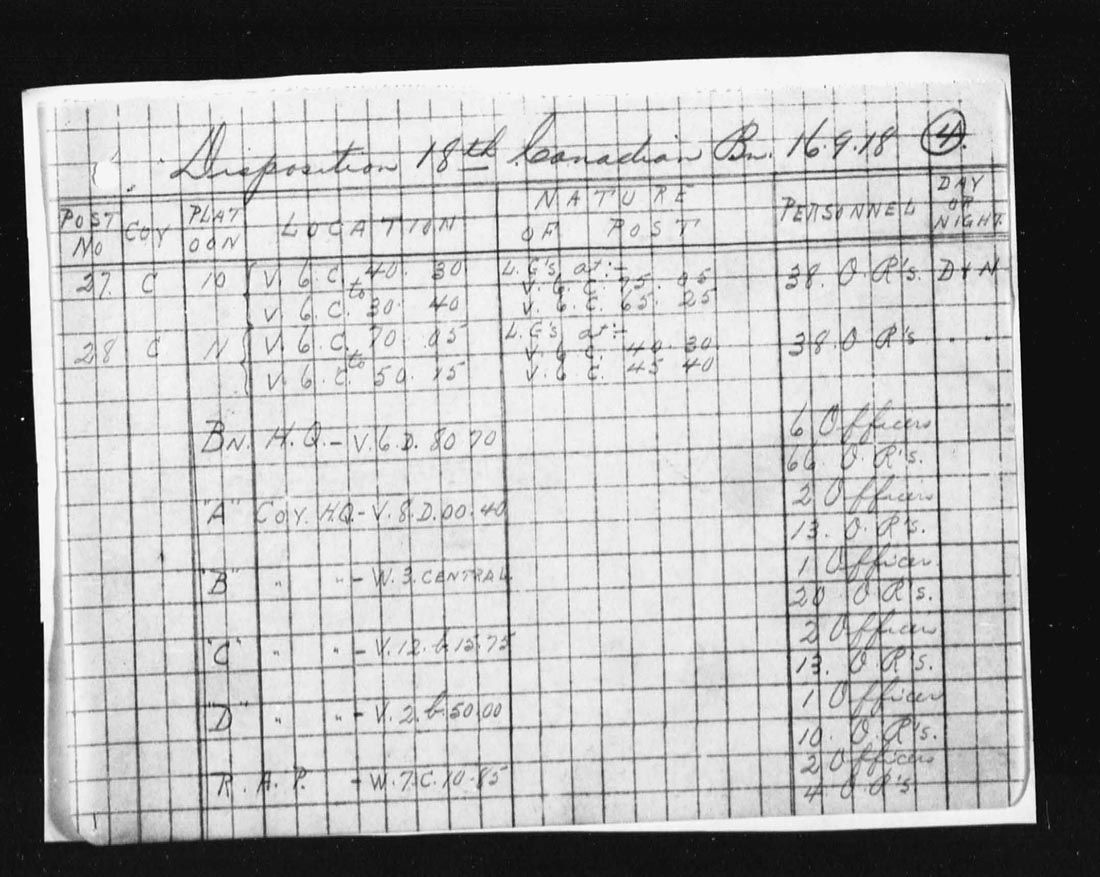 Disposition 18th Canadian Bn. 16.9.18 4.
POST NO COY PLATOON LOCATION NATURE OF POST PERSONNEL DAY OR NIGHT
27. C 10 V. 6. C. 40. 30 L.G's at:- 38. O.R's. D & N
to V. 6. C. 75. 95
V. 6. C. 30. 40 V. 6. C. 65. 25
28 C 11 V. 6. C. 70. 05 L.G's at:- 38. O R's " "
to V. 6 C. 40. 30
V. 6. C. 50. 15 V. 6 C. 45 40
BN. H.Q. - V.6.D. 80 70 6 Officers
66. O.R's.
"A" COY. H.Q. - V.8.D.00.40 2 Officers
13. O.R's.
"B" " " - W.3.CENTRAL 1 Officer
20 O R's.
"C" " " - V.12.b.15.75 2 Officers
13. O R's.
"D" " " - V.2.b.50.00 1 Officer
10. O.R's.
R.A.P. - W.7.C.10.85 2 Officers
4 O R's.